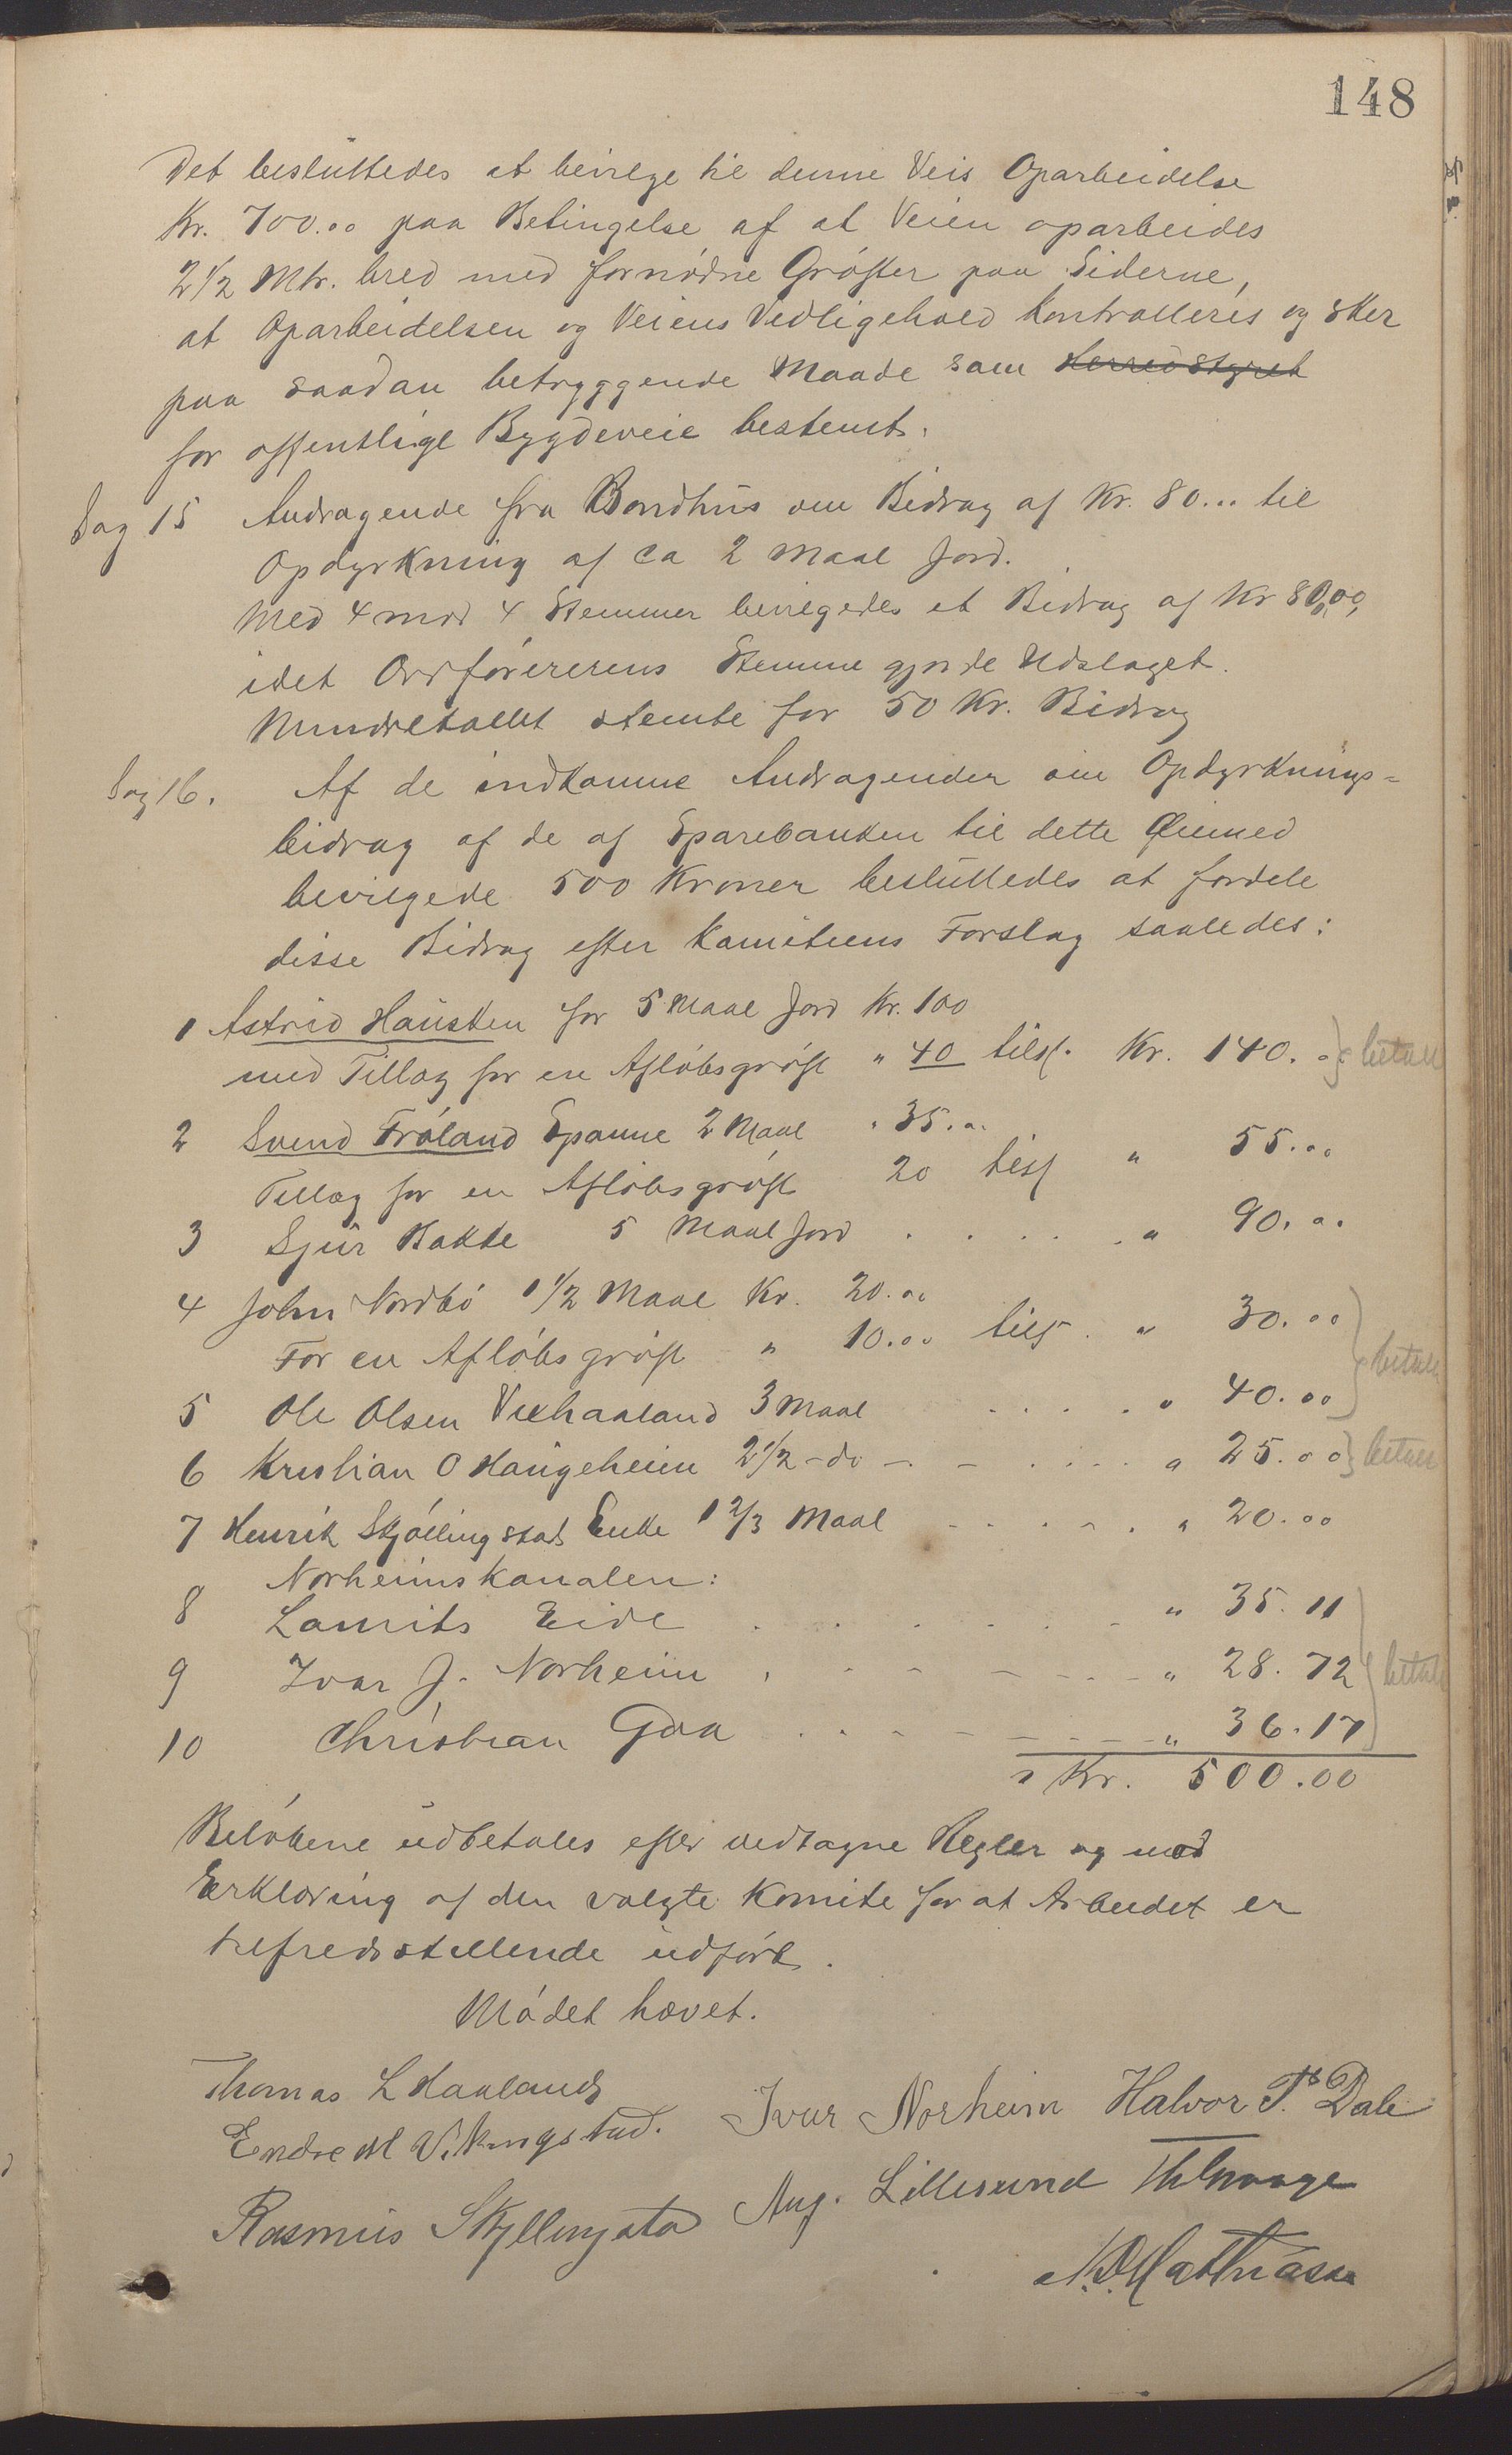 148
Det besluttedes at bevilge til denne Veis Oparbeidelse
Kr. 700.00 paa Betingelse af at Veien oparbeides
2 1/2 Mtr. bred med fornødne Grøfter paa Siderne,
at Oparbeidelsen og Veiens Vedligehold kontrolleres og sker
paa saadan betryggende Maade som Herredstyret
for offentlige Bygdeveie bestemt.
Sag 15 Andragende fra Bondhus om Bidrag af Kr. 80... til
Opdyrkning af ca 2 Maal Jord.
Med 4 mod 4 Stemmer bevilgedes et Bidrag af Kr 80,00,
idet Ordførerens Stemme gjorde Udslaget.
Mindretallet stemte for 50 Kr. Bidrag
Sag 16. Af de indkomne Andragender om Opdyrknings-
bidrag af de af Sparebanken til dette Øiemed
bevilgede 500 Kroner besluttedes at fordele
disse Bidrag efter Komiteens Forslag saaledes:
1 Astrid Hausken for 5 Maal Jord Kr. 100
med Tillæg for en Afløbsgrøft " 40 tils. Kr. 140. .. betalt
2 Svend Frøland Spanne 2 Maal " 35...
Tillæg for en Afløbsgrøft 20 tils " 55.00
3 Sjur Bakke 5 Maal Jord . . . . . " 90. ..
4 John Nordbø 1 1/2 Maal Kr. 20.00
For en Afløbsgrøft " 10.00 tils. " 30.00 betalt
5 Ole Olsen Vikhaaland 3 Maal . . . . " 40.00
6 Kristian O Haugeheim 2 1/2 - do - . - . . . . " 25.00 betalt
7 Henrik Skjøllingstads Enke 1 2/3 Maal - . . - . " 20.00
Norheimskanalen:
8 Laurits Eide . . . . . . - " 35.11
9 Ivar J. Norheim . . - - - - - " 28.72 betalt
10 Christian Goa . . - - - - - " 36.17
Kr. 500.00
Beløbene udbetales efter vedtagne Regler og med
Erklæring af den valgte Komite for at Arbeidet er
tilfredsstillende udført.
Mødet hævet.
Thomas L Haaland
Ivar Norheim Halvor Ts Dale
Endre M Vikingstad.
Aug. Lillesund
Rasmus Skjllingstad
N. D. Mathiasen